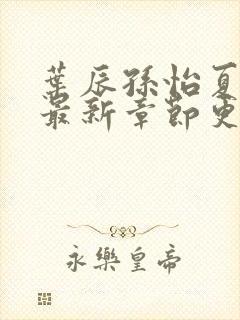 葉辰孫怡夏
最新章節更
永樂皇帝